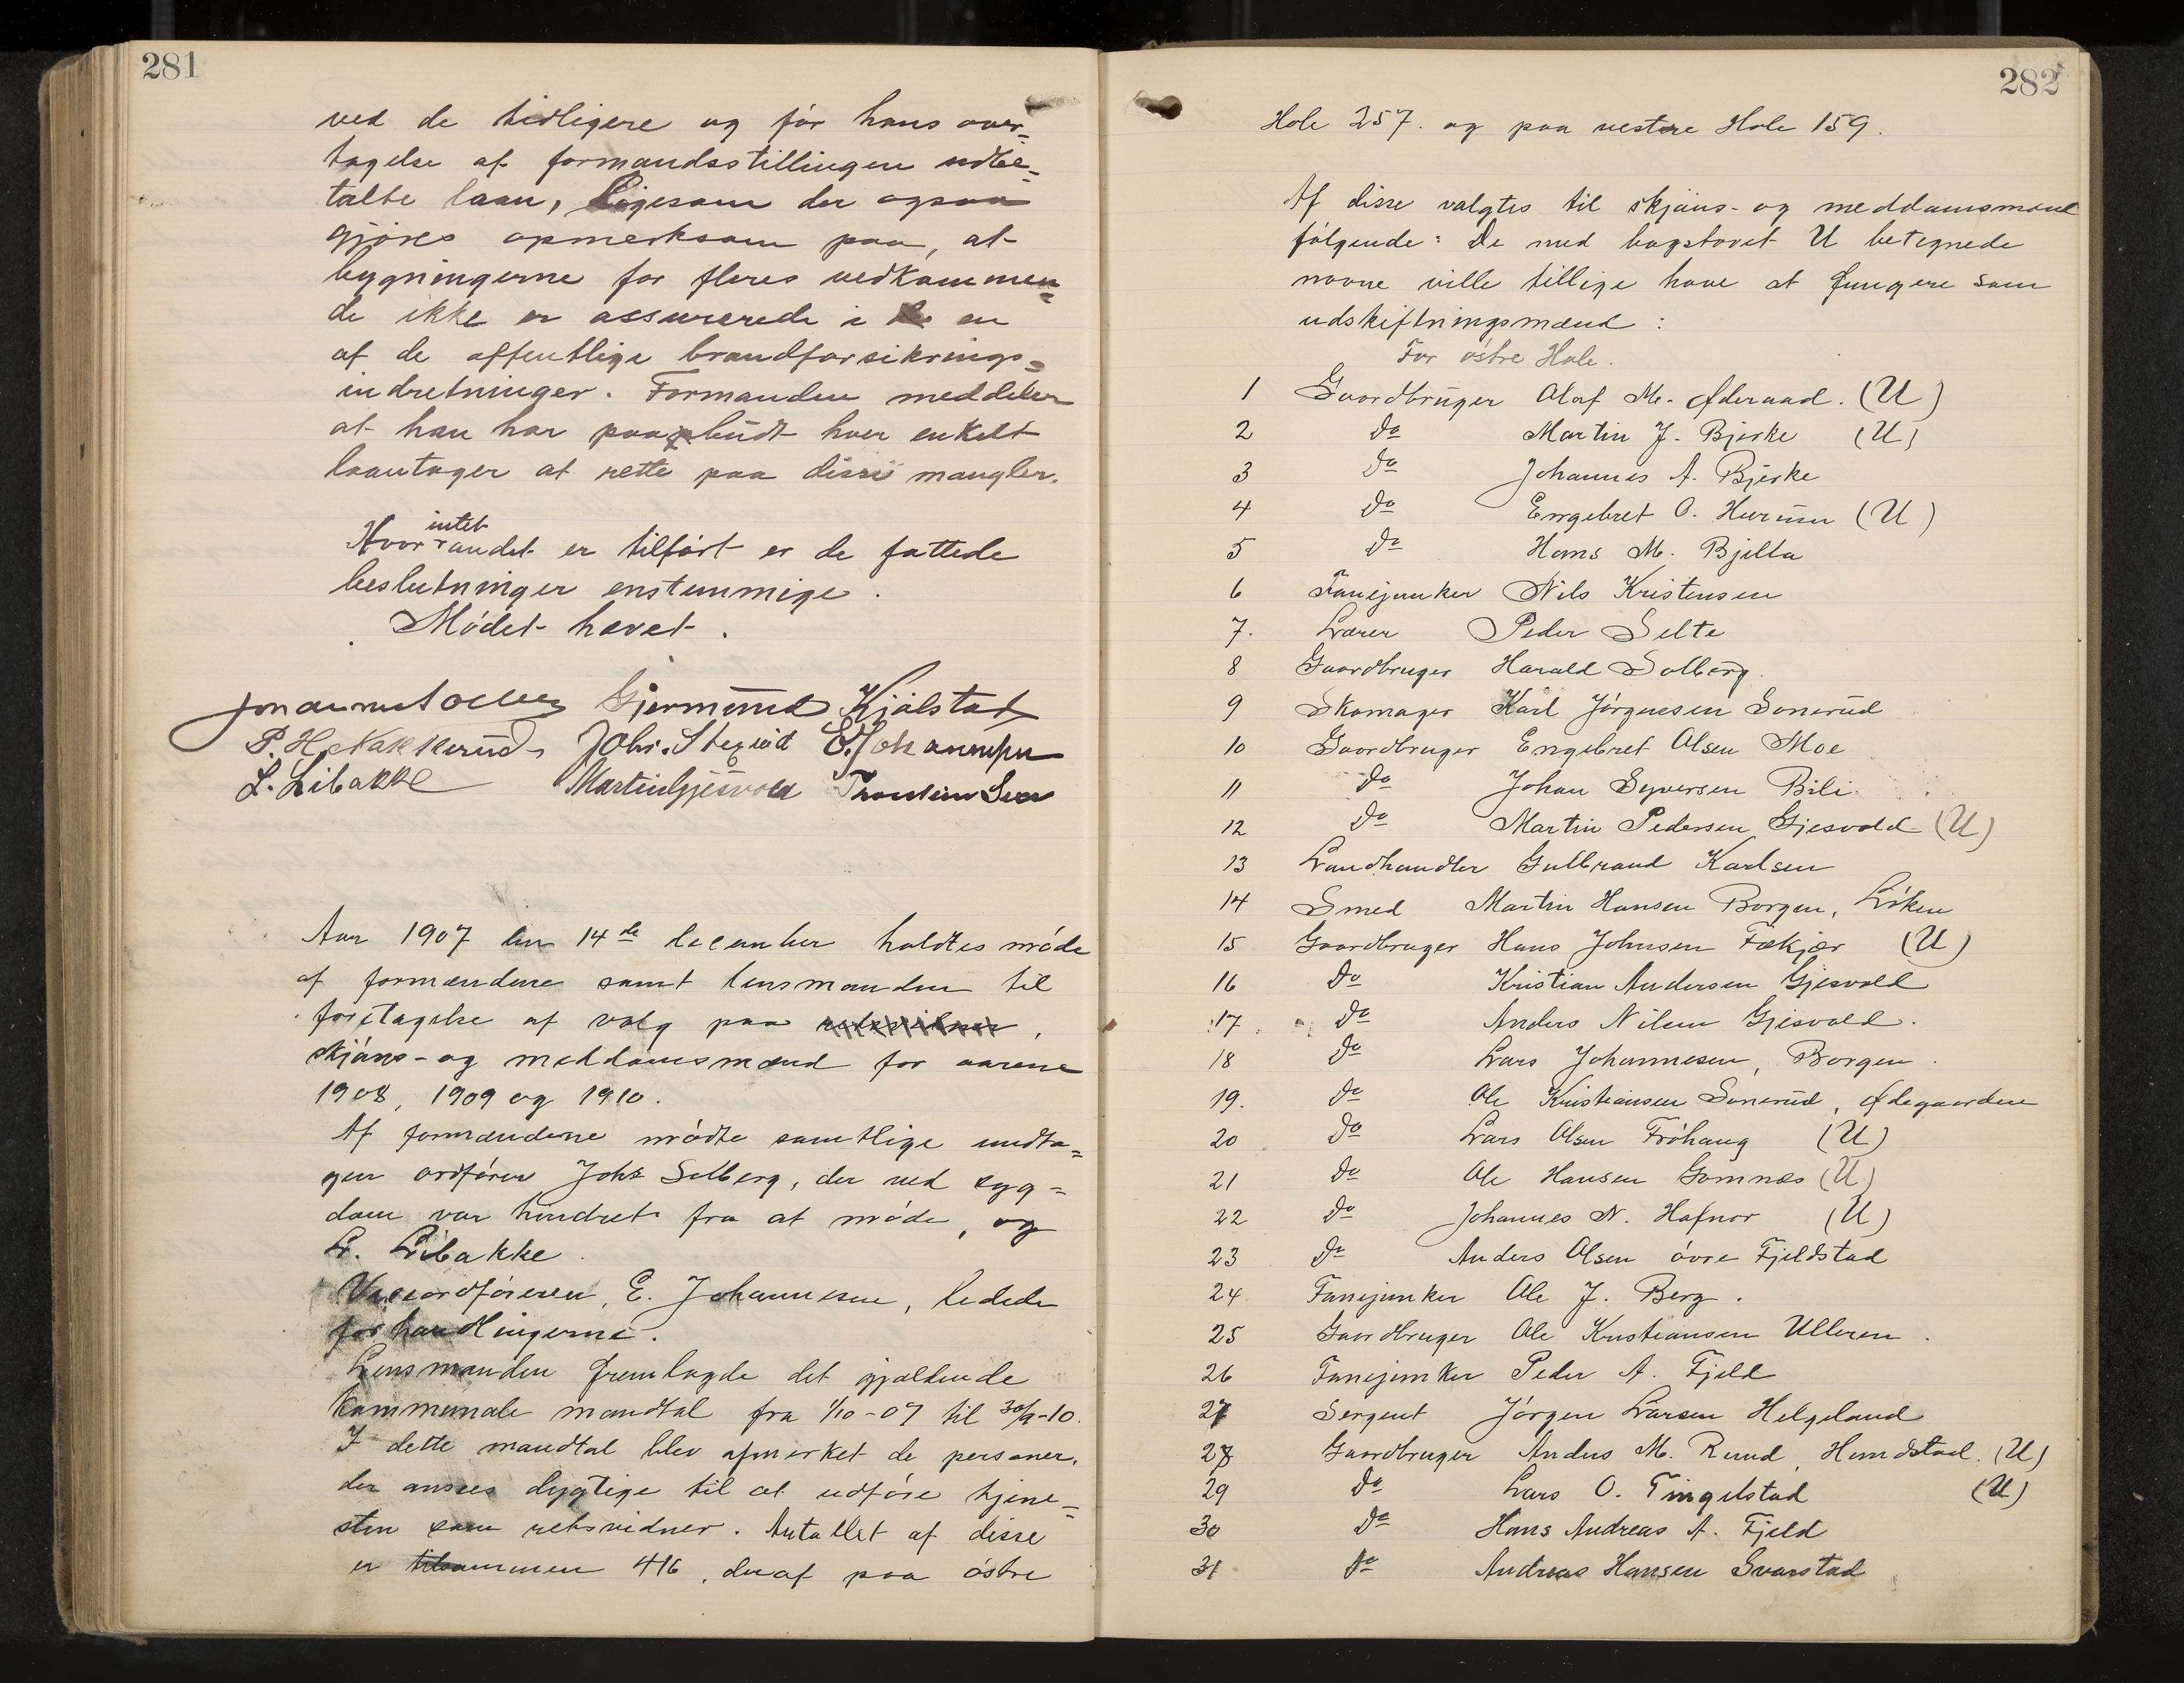 281
ved de tidligere og før hans over-
tagelse af formandsstillingen udbe-
talte laan, ligesom der ogsaa
gjøres opmerksom paa, at
bygningerne for fleres vedkommen-
de ikke er assurerede i en
af de offentlige brandforsikrings-
indretninger. Formanden meddeler
at han har paabudt hver enkelt
laantager at rette paa disse mangler.
Hvor intet andet er tilført er de fattede
beslutninger enstemmige.
Mødet hævet.
Gjermund Kjølstad
P. H. Nakkerud Johs. Stexrud E. Johannesen
L. Libakke Martin Gjesvold
Aar 1907 den 14de december holdtes møde
af formændene samt lensmanden til
foretagelse af valg paa retsvidner,
skjøns- og meddomsmænd for aarene
1908, 1909 og 1910.
Af formændene mødte samtlige undta-
gen ordfører Johs Solberg, der ved syg-
dom var hindret fra at møde, og
L. Libakke.
Viceordføreren, E. Johannesen, ledede
forhandlingerne.
Lensmanden fremlagde det gjældende
kommunale mandtal fra 1/10-07 til 30/9-10.
I dette mandtal blev afmerket de personer,
der ansees dygtige til at udføre tjene-
sten som retsvidner. Antallet af disse
er tilsammen 416, deraf paa østre
282
Hole 257. og paa vestre Hole 159.
Af disse valgtes til skjøns- og meddomsmænd
følgende: De med bogstavet U betegnede
navne ville tillige have at fungere som
udskiftningsmænd:
For østre Hole.
1 Gaardbruger Olaf M. Øderaad. (U)
2 do Martin J. Bjerke (U)
3 do Johannes A. Bjerke
4 do Engebret O. Hurum (U)
5 do Hans M. Bjella
6 Fanejunker Nils Kristensen
7. Lærer Peder Selte
8 Gaardbruger Harald Solberg.
9 Skomager Karl Jørgensen Sonerud
10 Gaardbruger Engebret Olsen Moe
11 do Johan Syversen Bili.
12 do Martin Pedersen Gjesvold (U)
13 Landhandler Gulbrand Karlsen
14 Smed Martin Hansen Borgen, Løken
15 Gaardbruger Hans Johnsen Fækjær (U)
16 do Kristian Andersen Gjesvold
17 do Anders Nilsen Gjesvold.
18 do Lars Johannesen, Borgen.
19. do Ole Kristiansen Sonerud, Ødegaarden
20 do Lars Olsen Frøhaug (U)
21 do Ole Hansen Gomnæs (U)
22 do Johannes N. Hafnor (U)
23 do Anders Olsen øvre Fjeldstad
24 Fanejunker Ole J. Berg.
25 Gaardbruger Ole Kristiansen Ulleren.
26 Fanejunker Peder A. Fjeld
27 Sergent Jørgen Larsen Helgeland
28 Gaardbruger Anders M. Ruud, Hundstad. (U)
29 do Lars O. Tingelstad (U)
30 do Hans Andreas A. Fjeld
31 do Andreas Hansen Svarstad